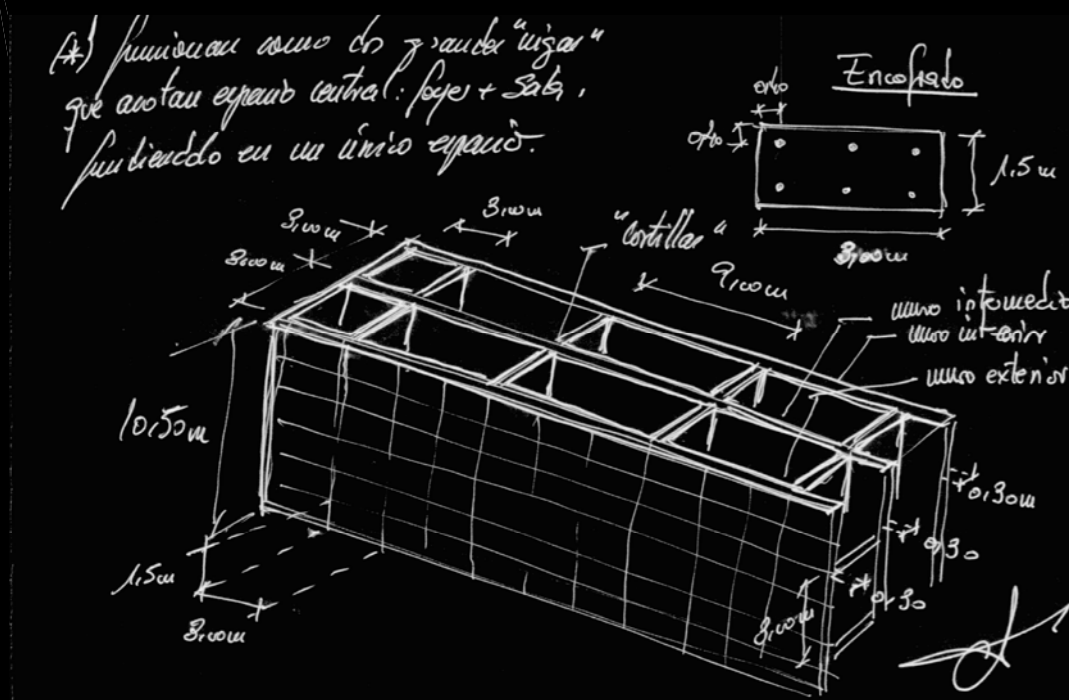 (*) funcionan como dos grandes "vigas"
que acotan espacio central: foyer + Sala,
fundiendolo en un único espacio.
Encofrado
0,40
0,40
1,5m
3,00m
3,00m
3,00m
3,00m
"costillas"
9,00m
muro intermedio
muro interior
muro exterior
10,50m
0,30m
0,30
0,30
3,00m
1,5m
3,00m